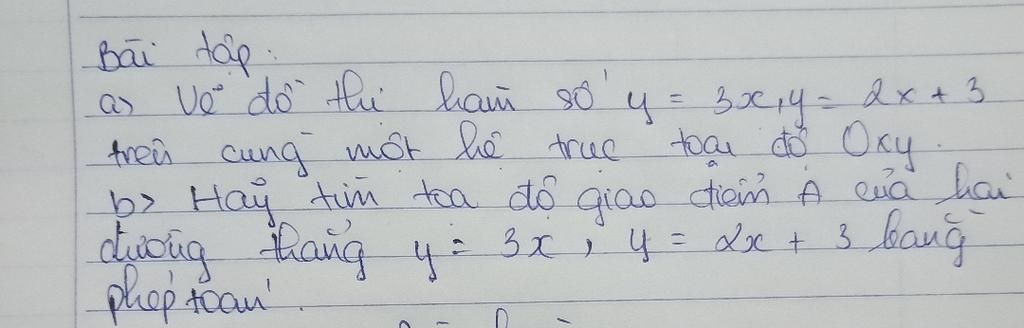 Bài tập:
a) Vẽ đồ thị hàm số y = 3x, y = 2x + 3
trên cùng một hệ trục toạ độ Oxy.
b) Hãy tìm toạ độ giao điểm A của hai
đường thẳng y = 3x, y = 2x + 3 bằng
phép toán.